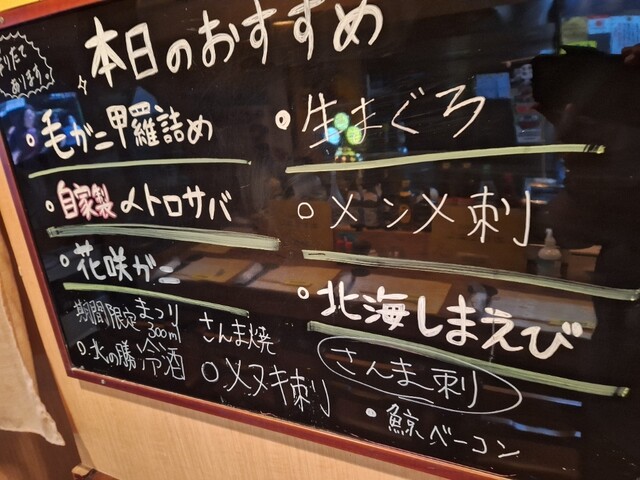 本日のおすすめ
あります。
・毛ガニ甲羅詰め
・自家製〆トロサバ
・花咲ガニ
期間限定 まつり
300ml
○北の勝 冷酒
さんま焼
○メヌキ刺
・生まぐろ
○メンメ刺
・北海しまえび
さんま刺
・鯨ベーコン